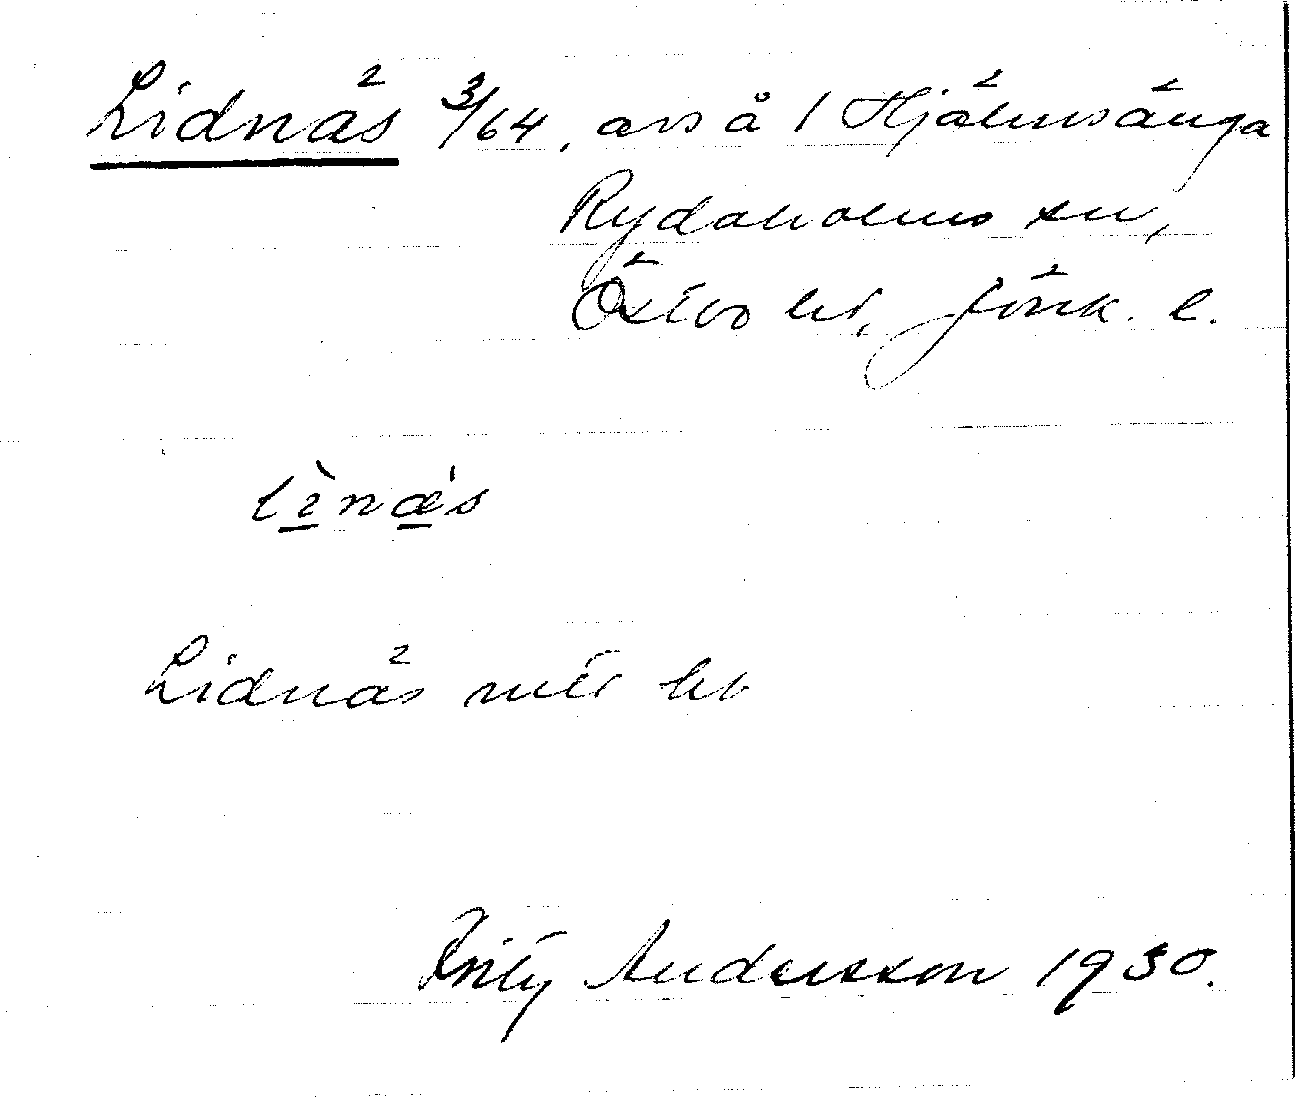 Lidnäs 3/64, avs å / Hjälmsänga
Rydaholms sn,
Östbo hd, Jönk. l.
lìnæ's
Lidnäs mtl hb
Andersson 1930.